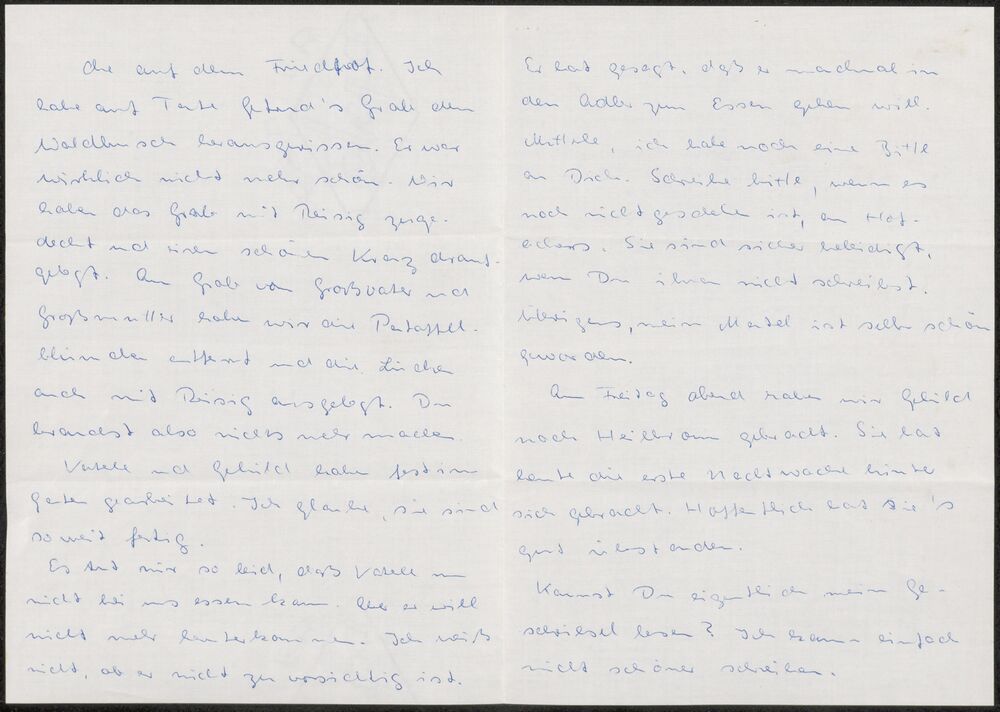 Uhr auf dem Friedhof. Ich
habe auf Tante Gertrud's Grab den
Waldbusch herausgerissen. Er war
wirklich nicht mehr schön. Wir
haben das Grab mit Reisig zuge-
deckt und einen schönen Kranz drauf-
gelegt. Am Grab von Großvater und
Großmutter haben wir die Pantoffel-
blumen entfernt und die Lücken
auch mit Reisig ausgelegt. Du
brauchst also nichts mehr machen.
Vatele und Gehild haben fest im
Garten gearbeitet. Ich glaube, sie sind
soweit fertig.
Es tut mir so leid, daß Vatele nun
nicht bei uns essen kann. Aber er will
nicht mehr runterkommen. Ich weiß
nicht, ob er nicht zu vorsichtig ist.
Er hat gesagt, daß er nochmal in
den Adler zum Essen gehen will.
Muttele, ich habe noch eine Bitte
an Dich. Schreibe bitte, wenn es
noch nicht geschehen ist, an Hof-
ackers. Sie sind sicher beleidigt,
wenn Du ihnen nicht schreibst.
Übrigens, mein Mantel ist sehr schön
geworden.
Am Freitag abend haben wir Gehild
nach Heilbronn gebracht. Sie hat
heute die erste Nachtwache hinter
sich gebracht. Hoffentlich hat sie's
gut überstanden.
Kannst Du eigentlich mein Ge-
schreibsel lesen? Ich kann einfach
nicht schöner schreiben.